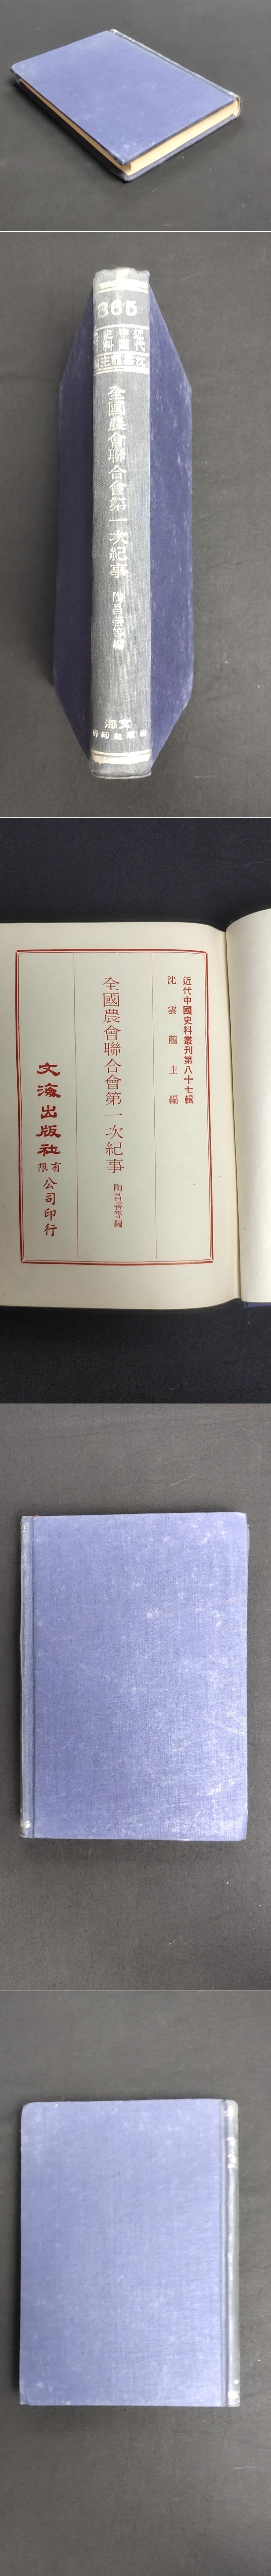 865
近代
中國
史料
沈雲龍主
全國農會聯合會第一次紀事
陶昌善等編
文海
出版社印行
近代中國史料叢刊第八十七輯
沈雲龍主編
全國農會聯合會第一次紀事
陶昌善等編
文海出版社有限公司印行